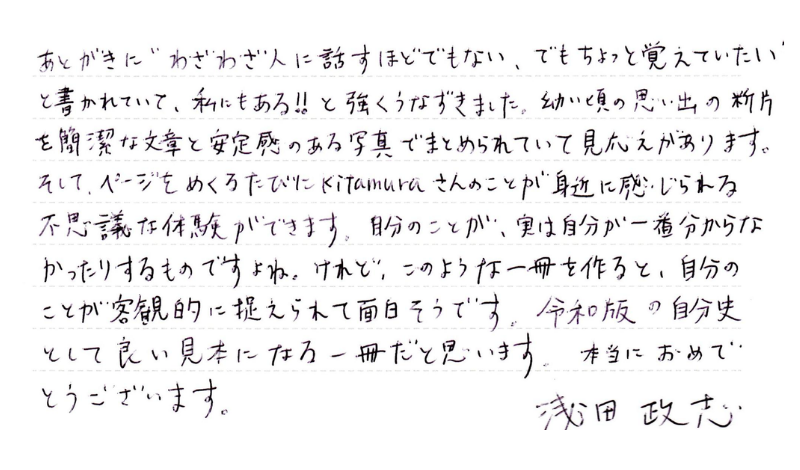 あとがきに“わざわざ人に話すほどでもない、でもちょっと覚えていたい”
と書かれていて、私にもある!!と強くうなずきました。幼い頃の思い出の断片
を簡潔な文章と安定感のある写真でまとめられていて見応えがあります。
そして、ページをめくるたびにKitamuraさんのことが身近に感じられる
不思議な体験ができます。自分のことが、実は自分が一番分からな
かったりするものですよね。けれど、このような一冊を作ると、自分の
ことが客観的に捉えられて面白そうです。令和版の自分史
として良い見本になる一冊だと思います。本当におめで
とうございます。
浅田政志